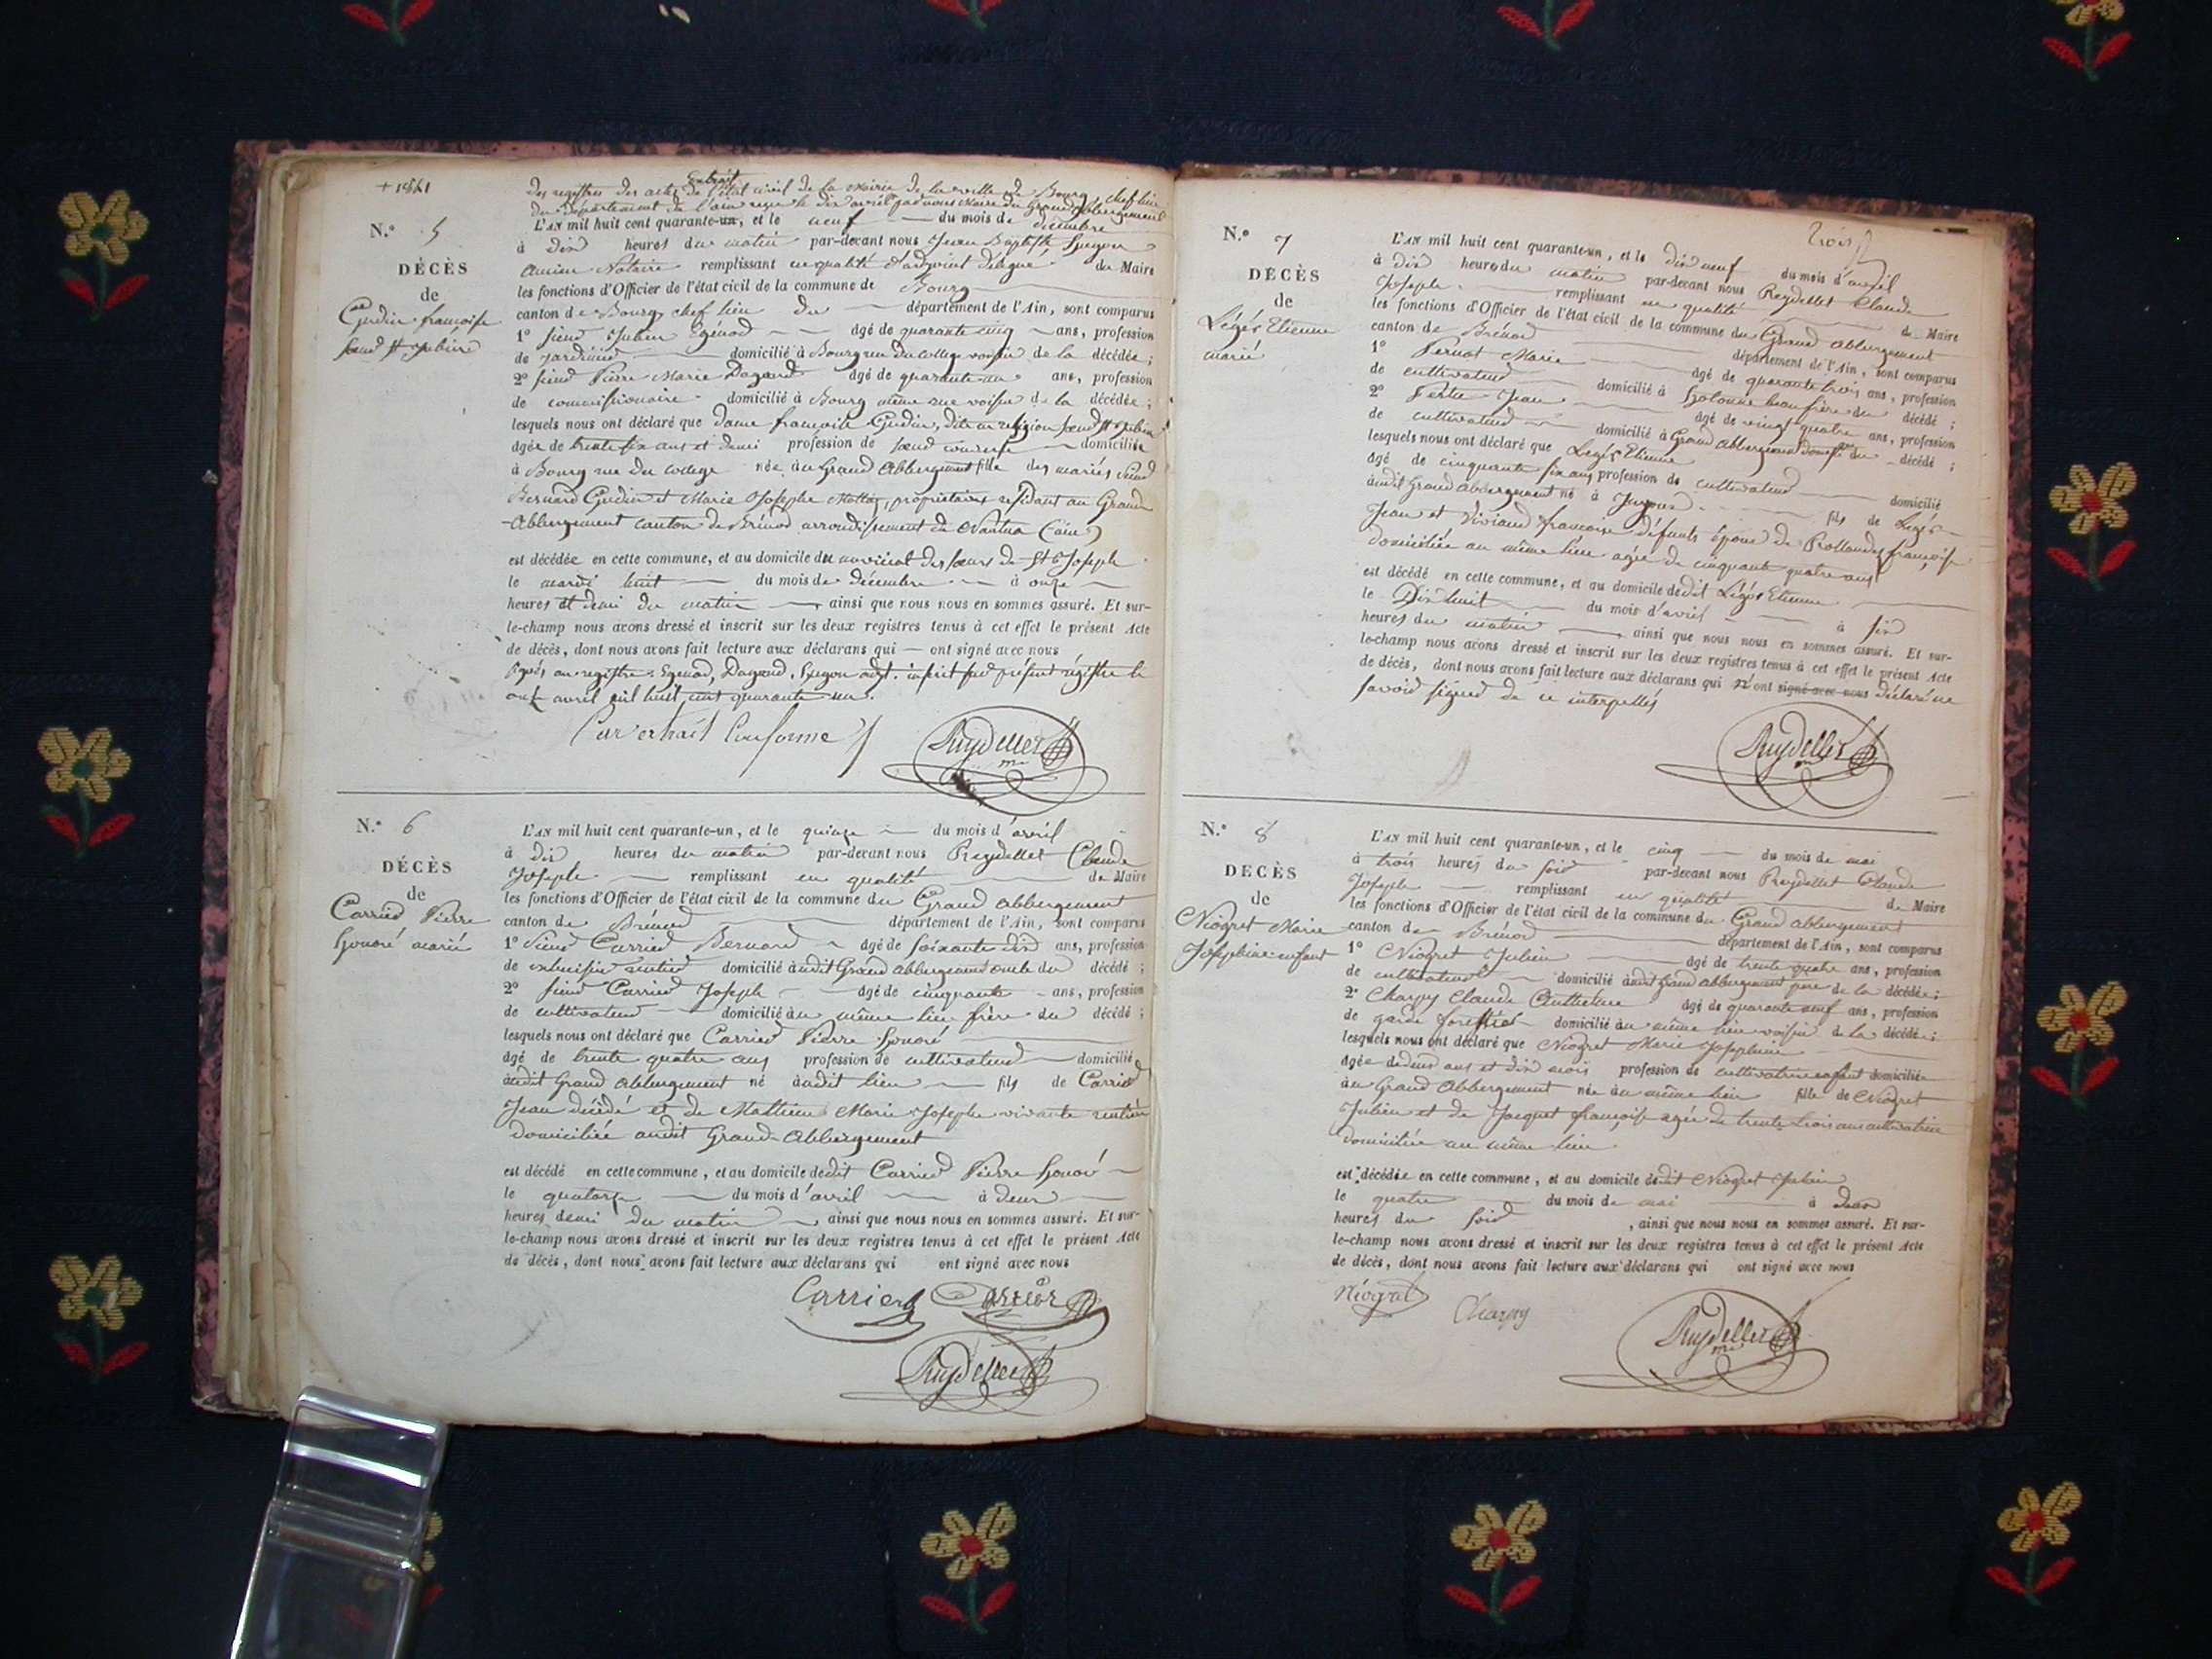 + 1841
Extrait
des registres des actes de l'état civil de la Mairie de la ville de Bourg, chef lieu
du Département de l'ain reçu le dix avril par nous Maire du Grand Abbergement
N.º 5
DÉCÈS
de
Gudin françoise
Sœur St
L'AN mil huit cent quarante-un, et le neuf du mois de décembre
à dix heures du matin par-devant nous Jean Baptiste
ancien Notaire remplissant en qualité d'adjoint délégué du Maire
les fonctions d'Officier de l'état civil de la commune de Bourg
canton de Bourg chef lieu du département de l'Ain, sont comparus
1º sieur Julien Egénod âgé de quarante cinq ans, profession
de jardinier domicilié à Bourg rue du college voisin de la décédée ;
2º sieur Pierre Marie Dagand âgé de quarante un ans, profession
de commissionaire domicilié à Bourg même rue voisin de la décédée ;
lesquels nous ont déclaré que dame françoise Gudin, dite en religion sœur St
âgée de trente six ans et demi profession de sœur converse domiciliée
à Bourg rue du college née au Grand Abbergement fille des mariés sieur
Bernard Gudin et Marie Josephe propriétaires résidant au Grand
Abbergement canton de Brénod arrondissement de Nantua (ain)
est décédée en cette commune, et au domicile du noviciat des sœurs de St Joseph
le mardi huit du mois de décembre à onze
heures et demi du matin ainsi que nous nous en sommes assuré. Et sur-
le-champ nous avons dressé et inscrit sur les deux registres tenus à cet effet le présent Acte
de décès, dont nous avons fait lecture aux déclarans qui ont signé avec nous
signés au registre. Egénod, Dagand, adjt. inscrit sur présent régistre le
onze avril mil huit cent quarante un.
Pour extrait Conforme
Reydellet
me
N.º 6
DÉCÈS
de
Carrier Pierre
honoré marié
L'AN mil huit cent quarante-un, et le quinze du mois d'avril
à dix heures du matin par-devant nous Reydellet Claude
Joseph remplissant en qualité de Maire
les fonctions d'Officier de l'état civil de la commune du Grand abbergement
canton de Brénod département de l'Ain, sont comparus
1º Sieur Carrier Bernard âgé de soixante dix ans, profession
de rentier domicilié audit Grand abbergement oncle du décédé ;
2º sieur Carrier Joseph âgé de cinquante ans, profession
de cultivateur domicilié au même lieu frère du décédé ;
lesquels nous ont déclaré que Carrier Pierre honoré
âgé de trente quatre ans profession de cultivateur domicilié
audit Grand abbergement né audit lieu fils de Carrier
Jean décédé et de Mathieu Marie Josephe vivante rentière
domiciliée audit Grand-Abbergement
est décédé en cette commune, et au domicile dudit Carrier Pierre honoré
le quatorze du mois d'avril à deux
heures demi du matin ainsi que nous nous en sommes assuré. Et sur-
le-champ nous avons dressé et inscrit sur les deux registres tenus à cet effet le présent Acte
de décès, dont nous avons fait lecture aux déclarans qui ont signé avec nous
Carrier Carrier
Reydellet
trois
N.º 7
DÉCÈS
de
Légér Etienne
marié
L'AN mil huit cent quarante-un, et le dix neuf du mois d'avril
à dix heures du matin par-devant nous Reydellet Claude
Joseph remplissant en qualité de Maire
les fonctions d'Officier de l'état civil de la commune du Grand abbergement
canton de Brénod département de l'Ain, sont comparus
1º Pernot Marie âgé de quarante trois ans, profession
de cultivateur domicilié à hotonne beau frère du décédé ;
2º Jean âgé de vingt quatre ans, profession
de cultivateur domicilié à Grand abbergement du décédé ;
lesquels nous ont déclaré que Legér Etienne
âgé de cinquante six ans profession de cultivateur domicilié
audit Grand abbergement né à fils de Legér
Jean et Viviand françoise défunts époux de françoise
domiciliée au même lieu agée de cinquante quatre ans
est décédé en cette commune, et au domicile dudit Légér Etienne
le Dix huit du mois d'avril à six
heures du matin ainsi que nous nous en sommes assuré. Et sur-
le-champ nous avons dressé et inscrit sur les deux registres tenus à cet effet le présent Acte
de décès, dont nous avons fait lecture aux déclarans qui n'ont signé avec nous déclaré ne
savoir signer de ce interpellés
Reydellet
me
N.º 8
DÉCÈS
de
Niogret Marie
Joséphine enfant
L'AN mil huit cent quarante-un, et le cinq du mois de mai
à trois heures du soir par-devant nous Reydellet Claude
Joseph remplissant en qualité de Maire
les fonctions d'Officier de l'état civil de la commune du Grand abbergement
canton de Brénod département de l'Ain, sont comparus
1º Niogret Julien âgé de trente quatre ans, profession
de cultivateur domicilié audit Grand abbergement père de la décédée ;
2º Charpy Claude Anthelme âgé de quarante neuf ans, profession
de garde forestier domicilié au même lieu voisin de la décédée ;
lesquels nous ont déclaré que Niogret Marie Joséphine
âgée de deux ans et dix mois profession de cultivatrice enfant domiciliée
au Grand Abbergement née au même lieu fille de Niogret
Julien et de Jacquet françoise agée de trente trois ans cultivatrice
domiciliée au même lieu
est décédée en cette commune, et au domicile dudit Niogret Julien
le quatre du mois de mai à deux
heures du soir, ainsi que nous nous en sommes assuré. Et sur-
le-champ nous avons dressé et inscrit sur les deux registres tenus à cet effet le présent Acte
de décès, dont nous avons fait lecture aux déclarans qui ont signé avec nous
Niogret Charpy
Reydellet
me